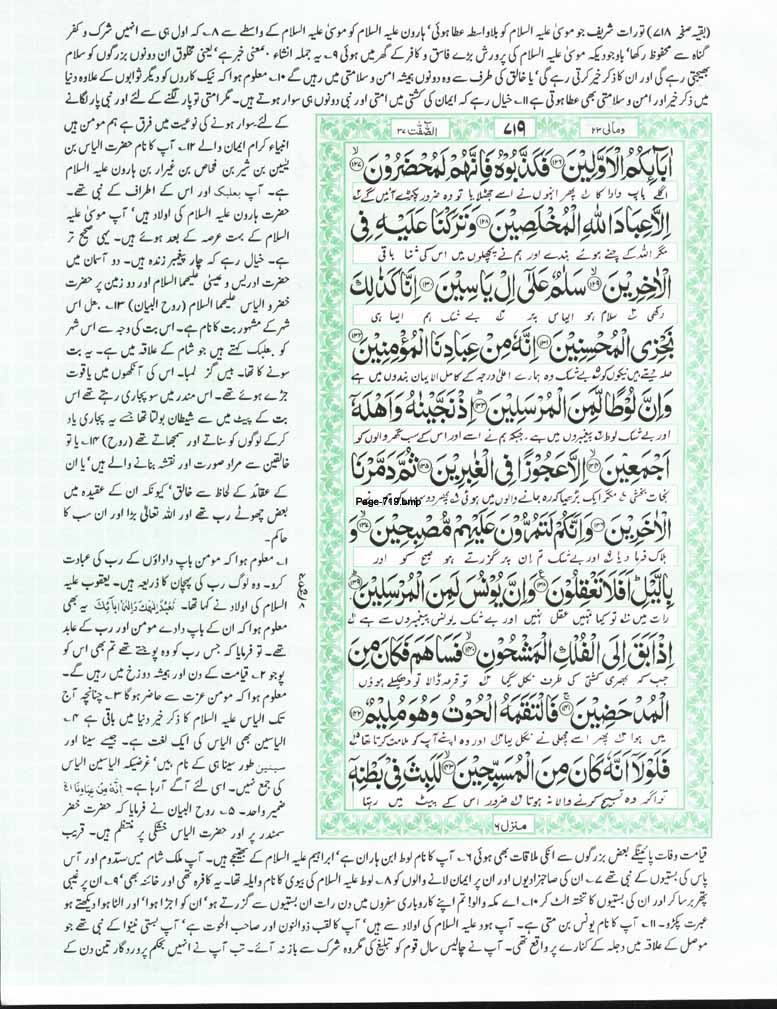 (بقیہ صفحہ ۷۱۸) تورات شریف جو موسیٰ علیہ السلام کو بلاواسطہ عطا ہوئی' ہارون علیہ السلام کو موسیٰ علیہ السلام کے واسطے سے ۸۔ کہ اول ہی سے انہیں شرک و کفر
گناہ سے محفوظ رکھا' باوجودیکہ موسیٰ علیہ السلام کی پرورش بڑے فاسق و کافر کے گھر میں ہوئی ۹۔ یہ جملہ انشاء، بمعنی خبر ہے' یعنی مخلوق ان دونوں بزرگوں کو سلام
بھیجتی رہے گی اور ان کا ذکر خیر کرتی رہے گی' یا خالق کی طرف سے وہ دونوں ہمیشہ امن و سلامتی میں رہیں گے ۱۰۔ معلوم ہوا کہ نیک کاروں کو دیگر ثوابوں کے علاوہ دنیا
میں ذکر خیر اور امن و سلامتی بھی عطا ہوتی ہے ۱۱۔ خیال رہے کہ ایمان کی کشتی میں امتی اور نبی دونوں ہی سوار ہوتے ہیں۔ مگر امتی تو پار لگنے کے لئے اور نبی پار لگانے
ومالی ۲۳
۷۱۹
الصّٰفّٰت ۳۷
اٰبَآئِكُمُ الْاَوَّلِيْنَ ﴿۱۲۶﴾ فَكَذَّبُوْهُ فَاِنَّهُمْ لَمُحْضَرُوْنَ ﴿۱۲۷﴾
اگلے باپ دادا کا پھر انہوں نے اسے جھٹلایا تو وہ ضرور پکڑے آئیں گے
اِلَّا عِبَادَ اللّٰهِ الْمُخْلَصِيْنَ ﴿۱۲۸﴾ وَتَرَكْنَا عَلَيْهِ فِى
مگر اللہ کے چنے ہوئے بندے اور ہم نے پچھلوں میں اس کی ثنا باقی
الْاٰخِرِيْنَ ﴿۱۲۹﴾ سَلٰمٌ عَلٰٓى اِلْ يَاسِيْنَ ﴿۱۳۰﴾ اِنَّا كَذٰلِكَ
رکھی سلام ہو الیاس پر بے شک ہم ایسا ہی
نَجْزِى الْمُحْسِنِيْنَ ﴿۱۳۱﴾ اِنَّهٗ مِنْ عِبَادِنَا الْمُؤْمِنِيْنَ ﴿۱۳۲﴾
صلہ دیتے ہیں نیکوں کو بے شک وہ ہمارے اعلیٰ درجہ کے کامل الایمان بندوں میں ہے
وَاِنَّ لُوْطًا لَّمِنَ الْمُرْسَلِيْنَ ﴿۱۳۳﴾ اِذْ نَجَّيْنٰهُ وَاَهْلَهٗٓ
اور بے شک لوط پیغمبروں میں ہے۔ جبکہ ہم نے اسے اور اس کے سب گھر والوں کو
اَجْمَعِيْنَ ﴿۱۳۴﴾ اِلَّا عَجُوْزًا فِى الْغٰبِرِيْنَ ﴿۱۳۵﴾ ثُمَّ دَمَّرْنَا
نجات بخشی مگر ایک بڑھیا کہ رہ جانے والوں میں ہوئی پھر دوسروں کو ہم نے
Page-719.bmp
الْاٰخَرِيْنَ ﴿۱۳۶﴾ وَاِنَّكُمْ لَتَمُرُّوْنَ عَلَيْهِمْ مُّصْبِحِيْنَ ﴿۱۳۷﴾ وَ
ہلاک فرما دیا اور بے شک تم ان پر گزرتے ہو صبح کو اور
بِالَّيْلِ اَفَلَا تَعْقِلُوْنَ ﴿۱۳۸﴾ وَاِنَّ يُوْنُسَ لَمِنَ الْمُرْسَلِيْنَ ﴿۱۳۹﴾
رات میں تو کیا تمہیں عقل نہیں اور بے شک یونس پیغمبروں سے ہے
اِذْ اَبَقَ اِلَى الْفُلْكِ الْمَشْحُوْنِ ﴿۱۴۰﴾ فَسَاهَمَ فَكَانَ مِنَ
جب کہ بھری کشتی کی طرف نکل گیا تو قرعہ ڈالا تو دھکیلے ہوؤں
الْمُدْحَضِيْنَ ﴿۱۴۱﴾ فَالْتَقَمَهُ الْحُوْتُ وَهُوَ مُلِيْمٌ ﴿۱۴۲﴾
میں ہوا پھر اسے مچھلی نے نگل لیا اور وہ اپنے آپ کو ملامت کرتا تھا
فَلَوْلَآ اَنَّهٗ كَانَ مِنَ الْمُسَبِّحِيْنَ ﴿۱۴۳﴾ لَلَبِثَ فِىْ بَطْنِهٖٓ
تو اگر وہ تسبیح کرنے والا نہ ہوتا ضرور اس کے پیٹ میں رہتا
منزل ۶
کے لئے سوار ہونے کی نوعیت میں فرق ہے ہم مومن ہیں
انبیاء کرام ایمان والے ۱۲۔ آپ کا نام حضرت الیاس بن
یسین بن شیر بن فحاص بن غیرار بن ہارون علیہ السلام
ہے۔ آپ بعلبک اور اس کے اطراف کے نبی تھے۔
حضرت ہارون علیہ السلام کی اولاد ہیں' آپ موسیٰ علیہ
السلام کے بہت عرصہ کے بعد ہوئے ہیں۔ یہی صحیح تر
ہے۔ خیال رہے کہ چار پیغمبر زندہ ہیں۔ دو آسمان میں
حضرت ادریس و عیسیٰ علیہما السلام اور دو زمین پر حضرت
خضر و الیاس علیہما السلام (روح البیان) ۱۳۔ بعل اس
شہر کے مشہور بت کا نام ہے۔ اس بت کی وجہ سے اس شہر
کو بعلبک کہتے ہیں جو شام کے علاقہ میں ہے۔ یہ بت
سونے کا تھا۔ بیس گز لمبا۔ اس کی آنکھوں میں یاقوت
جڑے ہوئے تھے۔ اس مندر میں سو پجاری رہتے تھے اس
بت کے پیٹ میں سے شیطان بولتا تھا جسے یہ پجاری یاد
کرکے لوگوں کو سناتے اور سمجھاتے تھے (روح) ۱۴۔ یا تو
خالقین سے مراد صورت اور نقشہ بنانے والے ہیں' یا ان
کے عقائد کے لحاظ سے خالق' کیونکہ ان کے عقیدہ میں
بعض چھوٹے رب تھے اور اللہ تعالیٰ بڑا اور ان سب کا
حاکم۔
۱۔ معلوم ہوا کہ مومن باپ داداؤں کے رب کی عبادت
کرو۔ وہ لوگ رب کی پہچان کا ذریعہ ہیں۔ یعقوب علیہ
السلام کی اولاد نے کہا تھا۔ نَعْبُدُ اِلٰهَكَ وَاِلٰهَ اٰبَآئِكَ یہ بھی
معلوم ہوا کہ ان کے باپ دادے مومن اور رب کے عابد
تھے۔ تو فرمایا کہ جس رب کو وہ پوجتے تھے تم بھی اس کو
پوجو ۲۔ قیامت کے دن اور ہمیشہ دوزخ میں رہیں گے۔
معلوم ہوا کہ مومن عزت سے حاضر ہوگا ۳۔ چنانچہ آج
تک الیاس علیہ السلام کا ذکر خیر دنیا میں باقی ہے ۴۔
الیاسین بھی الیاس کی ایک لغت ہے۔ جیسے سینا اور
سینین طور سینا ہی کے نام ہیں' غرضیکہ الیاسین الیاس
کی جمع نہیں۔ اسی لئے آگے آ رہا ہے۔ اِنَّهٗ مِنْ عِبَادِنَا
ضمیر واحد۔ ۵۔ روح البیان نے فرمایا کہ حضرت خضر
سمندر پر اور حضرت الیاس خشکی پر منتظم ہیں۔ قریب
قیامت وفات پائینگے بعض بزرگوں سے انکی ملاقات بھی ہوئی ۶۔ آپ کا نام لوط ابن ہاران ہے' ابراہیم علیہ السلام کے بھتیجے ہیں۔ آپ ملک شام میں سدوم اور آس
پاس کی بستیوں کے نبی تھے ۷۔ ان کی صاحبزادیوں اور ان پر ایمان لانے والوں کو ۸۔ لوط علیہ السلام کی بیوی کا نام واہلہ تھا۔ یہ کافرہ تھی اور خائنہ بھی' ۹۔ ان پر غیبی
پتھر برسا کر اور ان کی بستیوں کا تختہ الٹ کر ۱۰۔ اے مکہ والو! تم اپنے کاروباری سفروں میں دن رات ان بستیوں سے گزرتے ہو' ان کو اجڑا ہوا' اور الٹا ہوا دیکھتے ہو
عبرت پکڑو۔ ۱۱۔ آپ کا نام یونس بن متی ہے۔ آپ ہود علیہ السلام کی اولاد سے ہیں' آپ کا لقب ذوالنون اور صاحب الحوت ہے' آپ بستی نینوا کے نبی تھے جو
موصل کے علاقہ میں دجلہ کے کنارے پر واقع تھی۔ آپ نے چالیس سال قوم کو تبلیغ کی مگر وہ شرک سے باز نہ آئے۔ تب آپ نے انہیں بحکم پروردگار تین دن کے